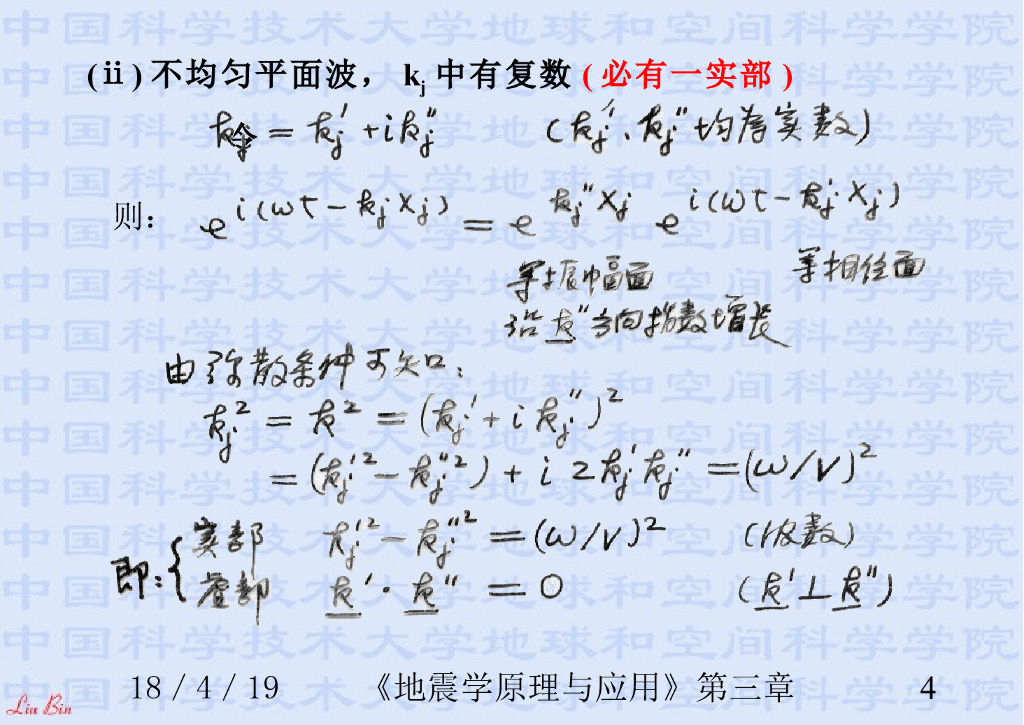 (ii) 不均匀平面波， kj 中有复数 ( 必有一实部 )
令 kj = kj' + i kj'' (kj'、kj'' 均为实数)
则: e^{i(ωt - kj xj)} = e^{kj'' xj} e^{i(ωt - kj' xj)}
等振幅面 等相位面
沿 k'' 方向指数增长
由弥散条件可知:
kj² = k² = (kj' + i kj'')²
= (kj'² - kj''²) + i 2 kj' kj'' = (ω/v)²
即: { 实部 kj'² - kj''² = (ω/v)² (波数)
虚部 k' · k'' = 0 (k' ⊥ k'')
18 / 4 / 19 《地震学原理与应用》第三章 4
Liu Bin
中国科学技术大学地球和空间科学学院